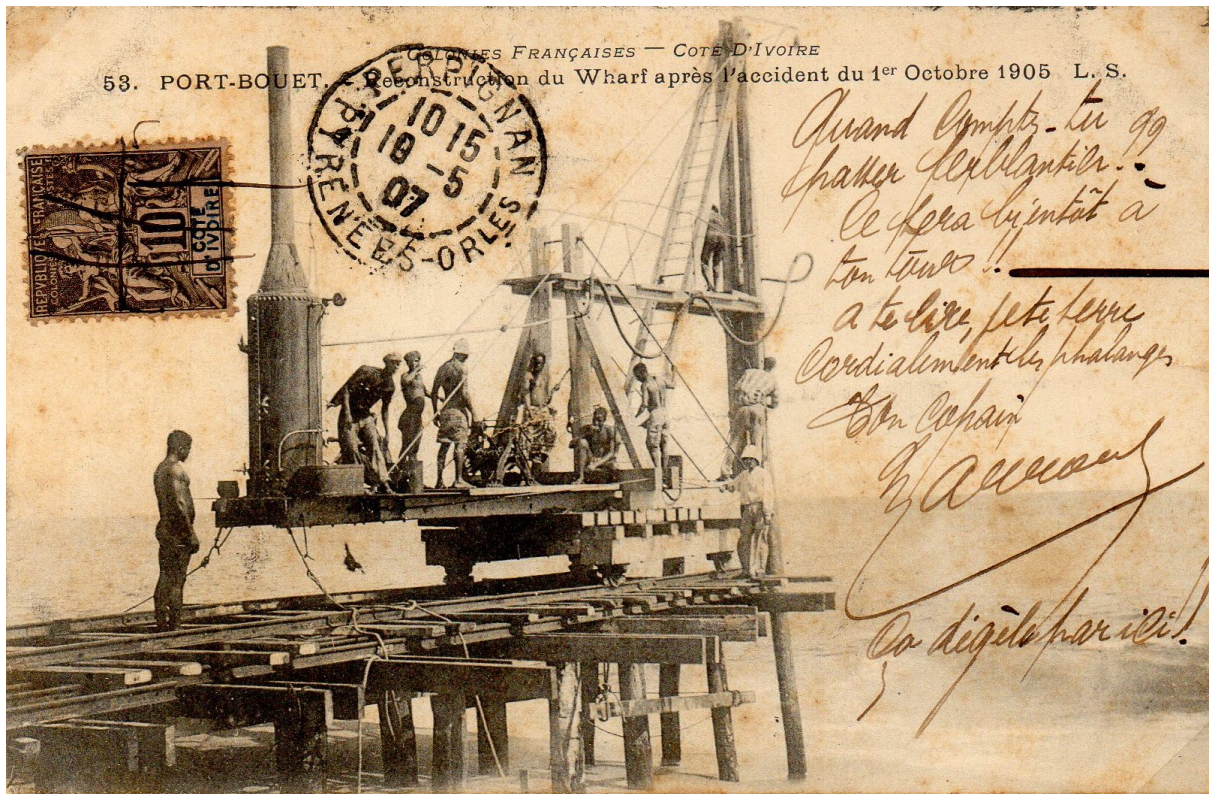 COLONIES FRANÇAISES — COTE D'IVOIRE
53. PORT-BOUET. — Reconstruction du Wharf après l'accident du 1er Octobre 1905 L. S.
PERPIGNAN
10 15
18 -5
07
PYRENÉES-ORLES
REPUBLIQUE FRANÇAISE
COLONIES
POSTES
10
COTE
D'IVOIRE
Quand compte-tu
passer ferblantier..
Ce sera bientôt à
ton tour !!
a te lire, je te serre
Cordialement les phalanges
Ton Copain
Ça dégèle par ici !